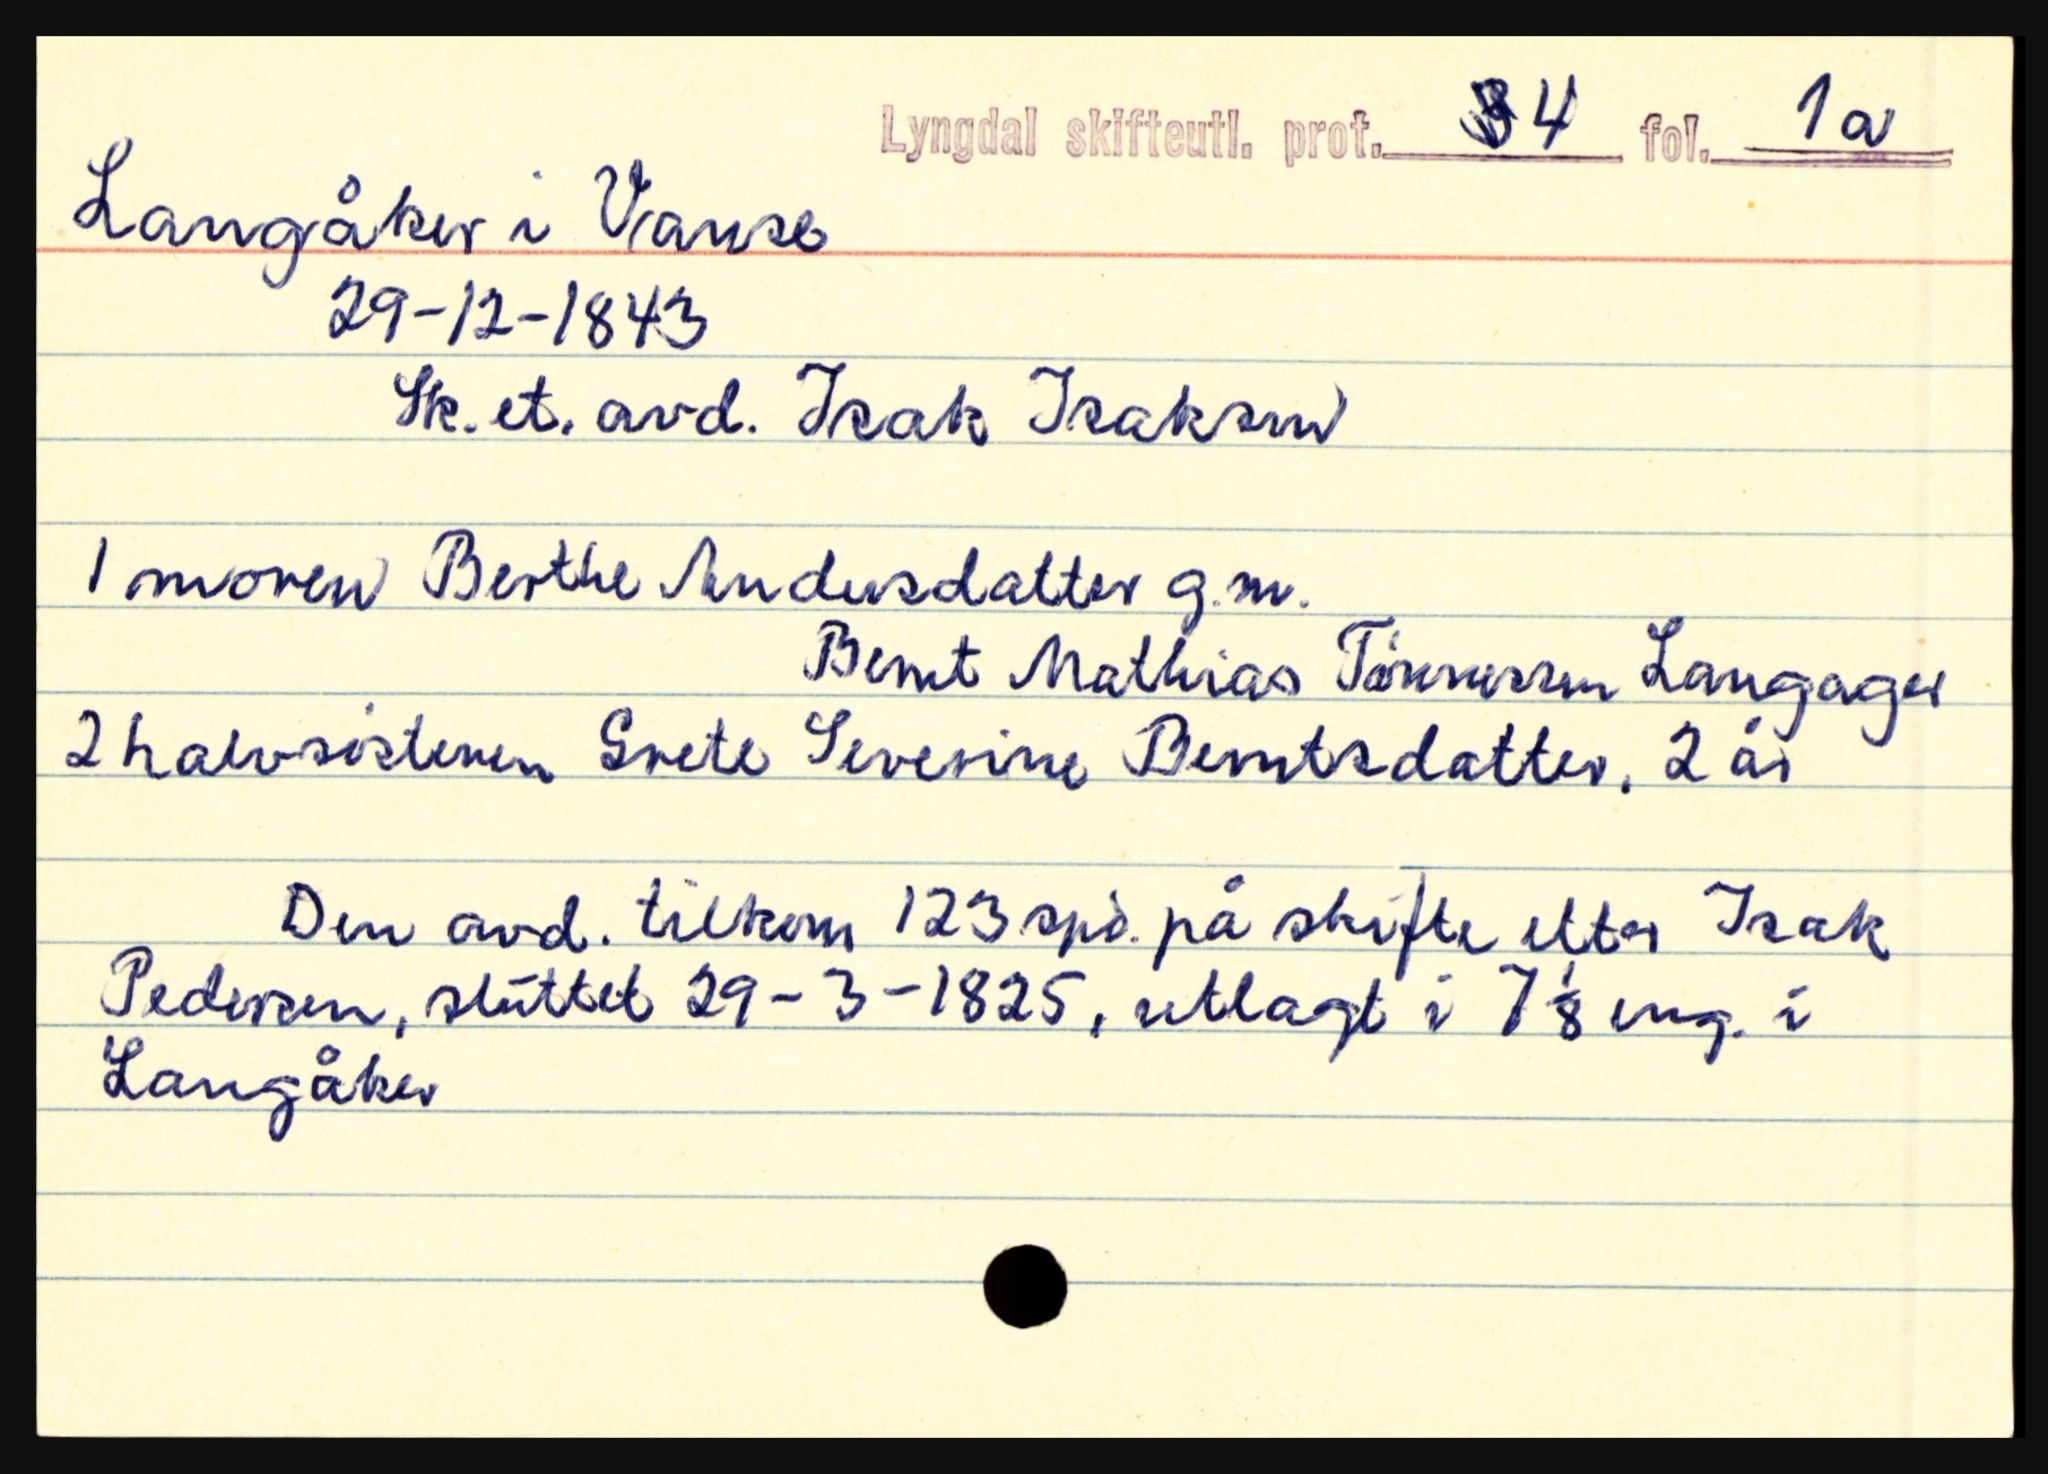 Lyngdal skifteutl. prot. 4 fol. 1a
Langåker i Vanse
29-12-1843
Sk. et. avd. Isak Isaksen
1 moren Berthe Andersdatter g.m.
Bernt Mathias Tønnessen Langager
2 halvsisteren Grete Severine Berntsdatter, 2 år
Den avd. tilkom 123 spd. på skifte etter Isak
Pedersen, sluttet 29-3-1825, utlagt i 7 1/8 eng. i
Langåker